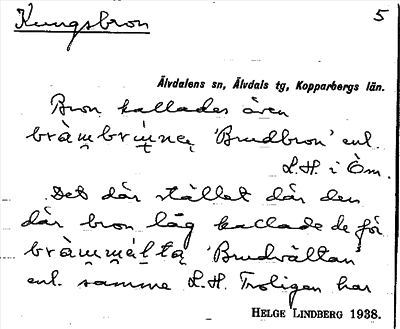 Kungsbron 5
Älvdalens sn, Älvdals tg, Kopparbergs län.
Bron kallades även
bràmbrúnę 'Brudbron' enl.
L.H. i Öm.
Det där stället där den
där bron låg kallade de för
bràmmáltą 'Brudvältan'
enl. samme L.H. Troligen har
HELGE LINDBERG 1938.